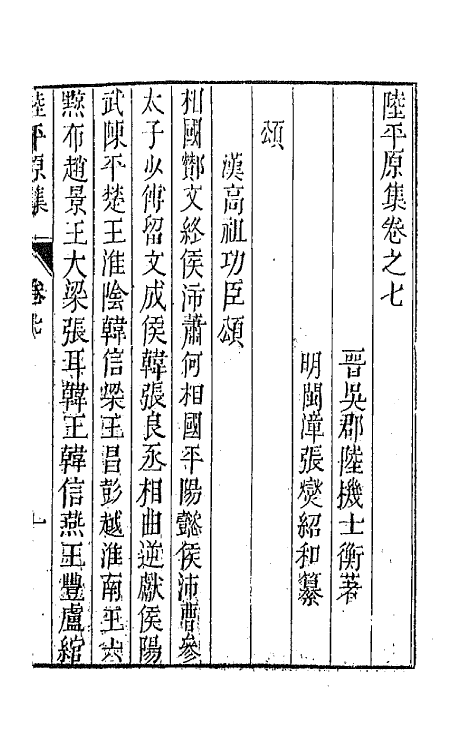 陸平原集卷之七
晋吳郡陸機士衡著
明閩漳張燮紹和纂
頌
漢高祖功臣頌
相國酇文終侯沛蕭何相國平陽懿侯沛曹參
太子少傅留文成侯韓張良丞相曲逆獻侯陽
武陳平楚王淮陰韓信梁王昌彭越淮南王六
黥布趙景王大梁張耳韓王韓信燕王豐盧綰
陸平原集 卷七 一